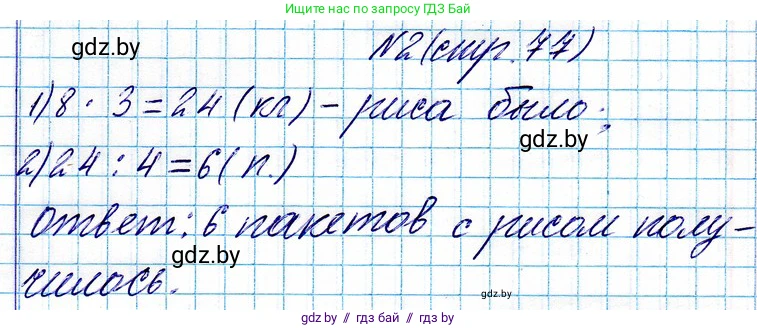 Ищите нас по запросу ГДЗ Бай
gdz.by
№2 (стр. 77)
1) 8 · 3 = 24 (кг) - риса было;
gdz.by
2) 24 : 4 = 6 (п.)
Ответ: 6 пакетов с рисом полу-
gdz.by
чилось.
gdz.by
gdz.by // гдз.бай // gdz.by